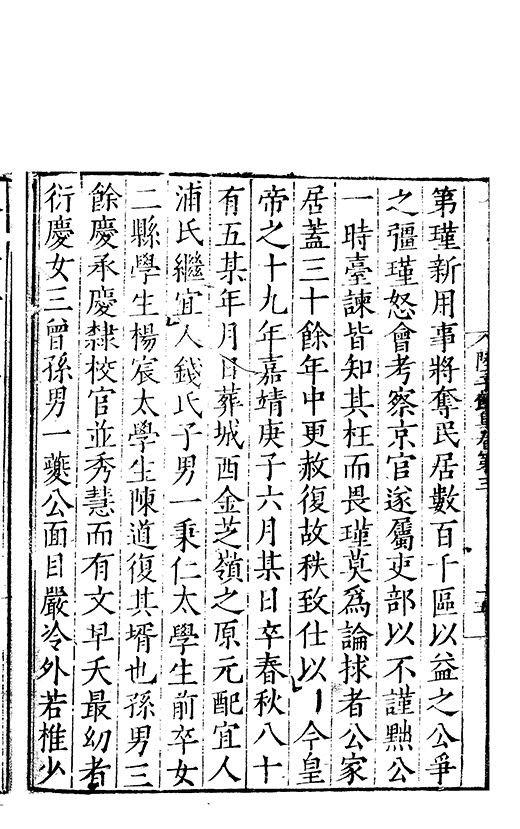 第瑾新用事將奪民居數百千區以益之公爭
之彊瑾怒會考察京官遂屬吏部以不謹黜公
一時臺諫皆知其枉而畏瑾莫爲論捄者公家
居蓋三十餘年中更赦復故秩致仕以今皇
帝之十九年嘉靖庚子六月某日卒春秋八十
有五某年月日葬城西金芝嶺之原元配宜人
浦氏繼宜人錢氏子男一秉仁太學生前卒女
二縣學生楊宸太學生陳道復其壻也孫男三
餘慶承慶隸校官並秀慧而有文早夭最幼者
衍慶女三曾孫男一夔公面目嚴冷外若椎少